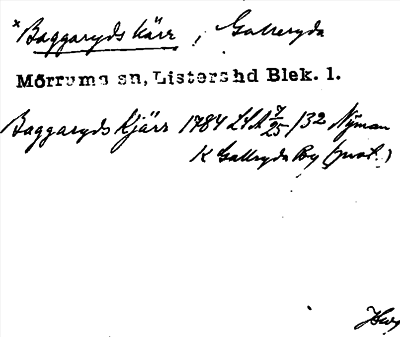 * Baggaryds kärr, Galleryda
Mörrums sn, Listershd Blek. l.
Baggaryds Kjärr 1784 LSA 7/25 /32 Nyman
K Galleryds By (prot.)